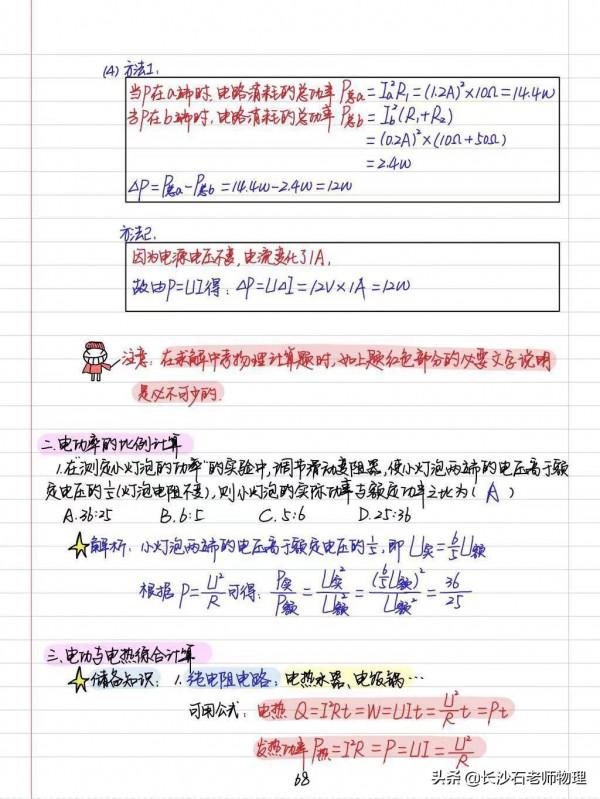 (4) 方法1.
当P在a端时,电路消耗的总功率 P总a=Ia²R₁=(1.2A)²×10Ω=14.4W
当P在b端时,电路消耗的总功率 P总b=Ib²(R₁+R₂)
=(0.2A)²×(10Ω+50Ω)
=2.4W
ΔP=P总a-P总b=14.4W-2.4W=12W
方法2.
因为电源电压不变,电流变化了1A,
故由P=UI得:ΔP=UΔI=12V×1A=12W
注意:在求解中考物理计算题时,如上题红色部分的必要文字说明
是必不可少的.
二.电功率的比例计算
1.在"测定小灯泡的功率"的实验中,调节滑动变阻器,使小灯泡两端的电压高于额
定电压的1/5(灯泡电阻不变),则小灯泡的实际功率与额定功率之比为( A )
A.36:25 B.6:5 C.5:6 D.25:36
解析:小灯泡两端的电压高于额定电压的1/5,即U实=6/5U额
根据P=U²/R可得:P实/P额=U实²/U额²=(6/5U额)²/U额²=36/25
三.电功与电热综合计算
储备知识:1.纯电阻电路:电热水器、电饭锅…
可用公式:电热Q=I²Rt=W=UIt=U²/Rt=Pt
发热功率P热=I²R=P=UI=U²/R
68
头条@长沙石老师物理